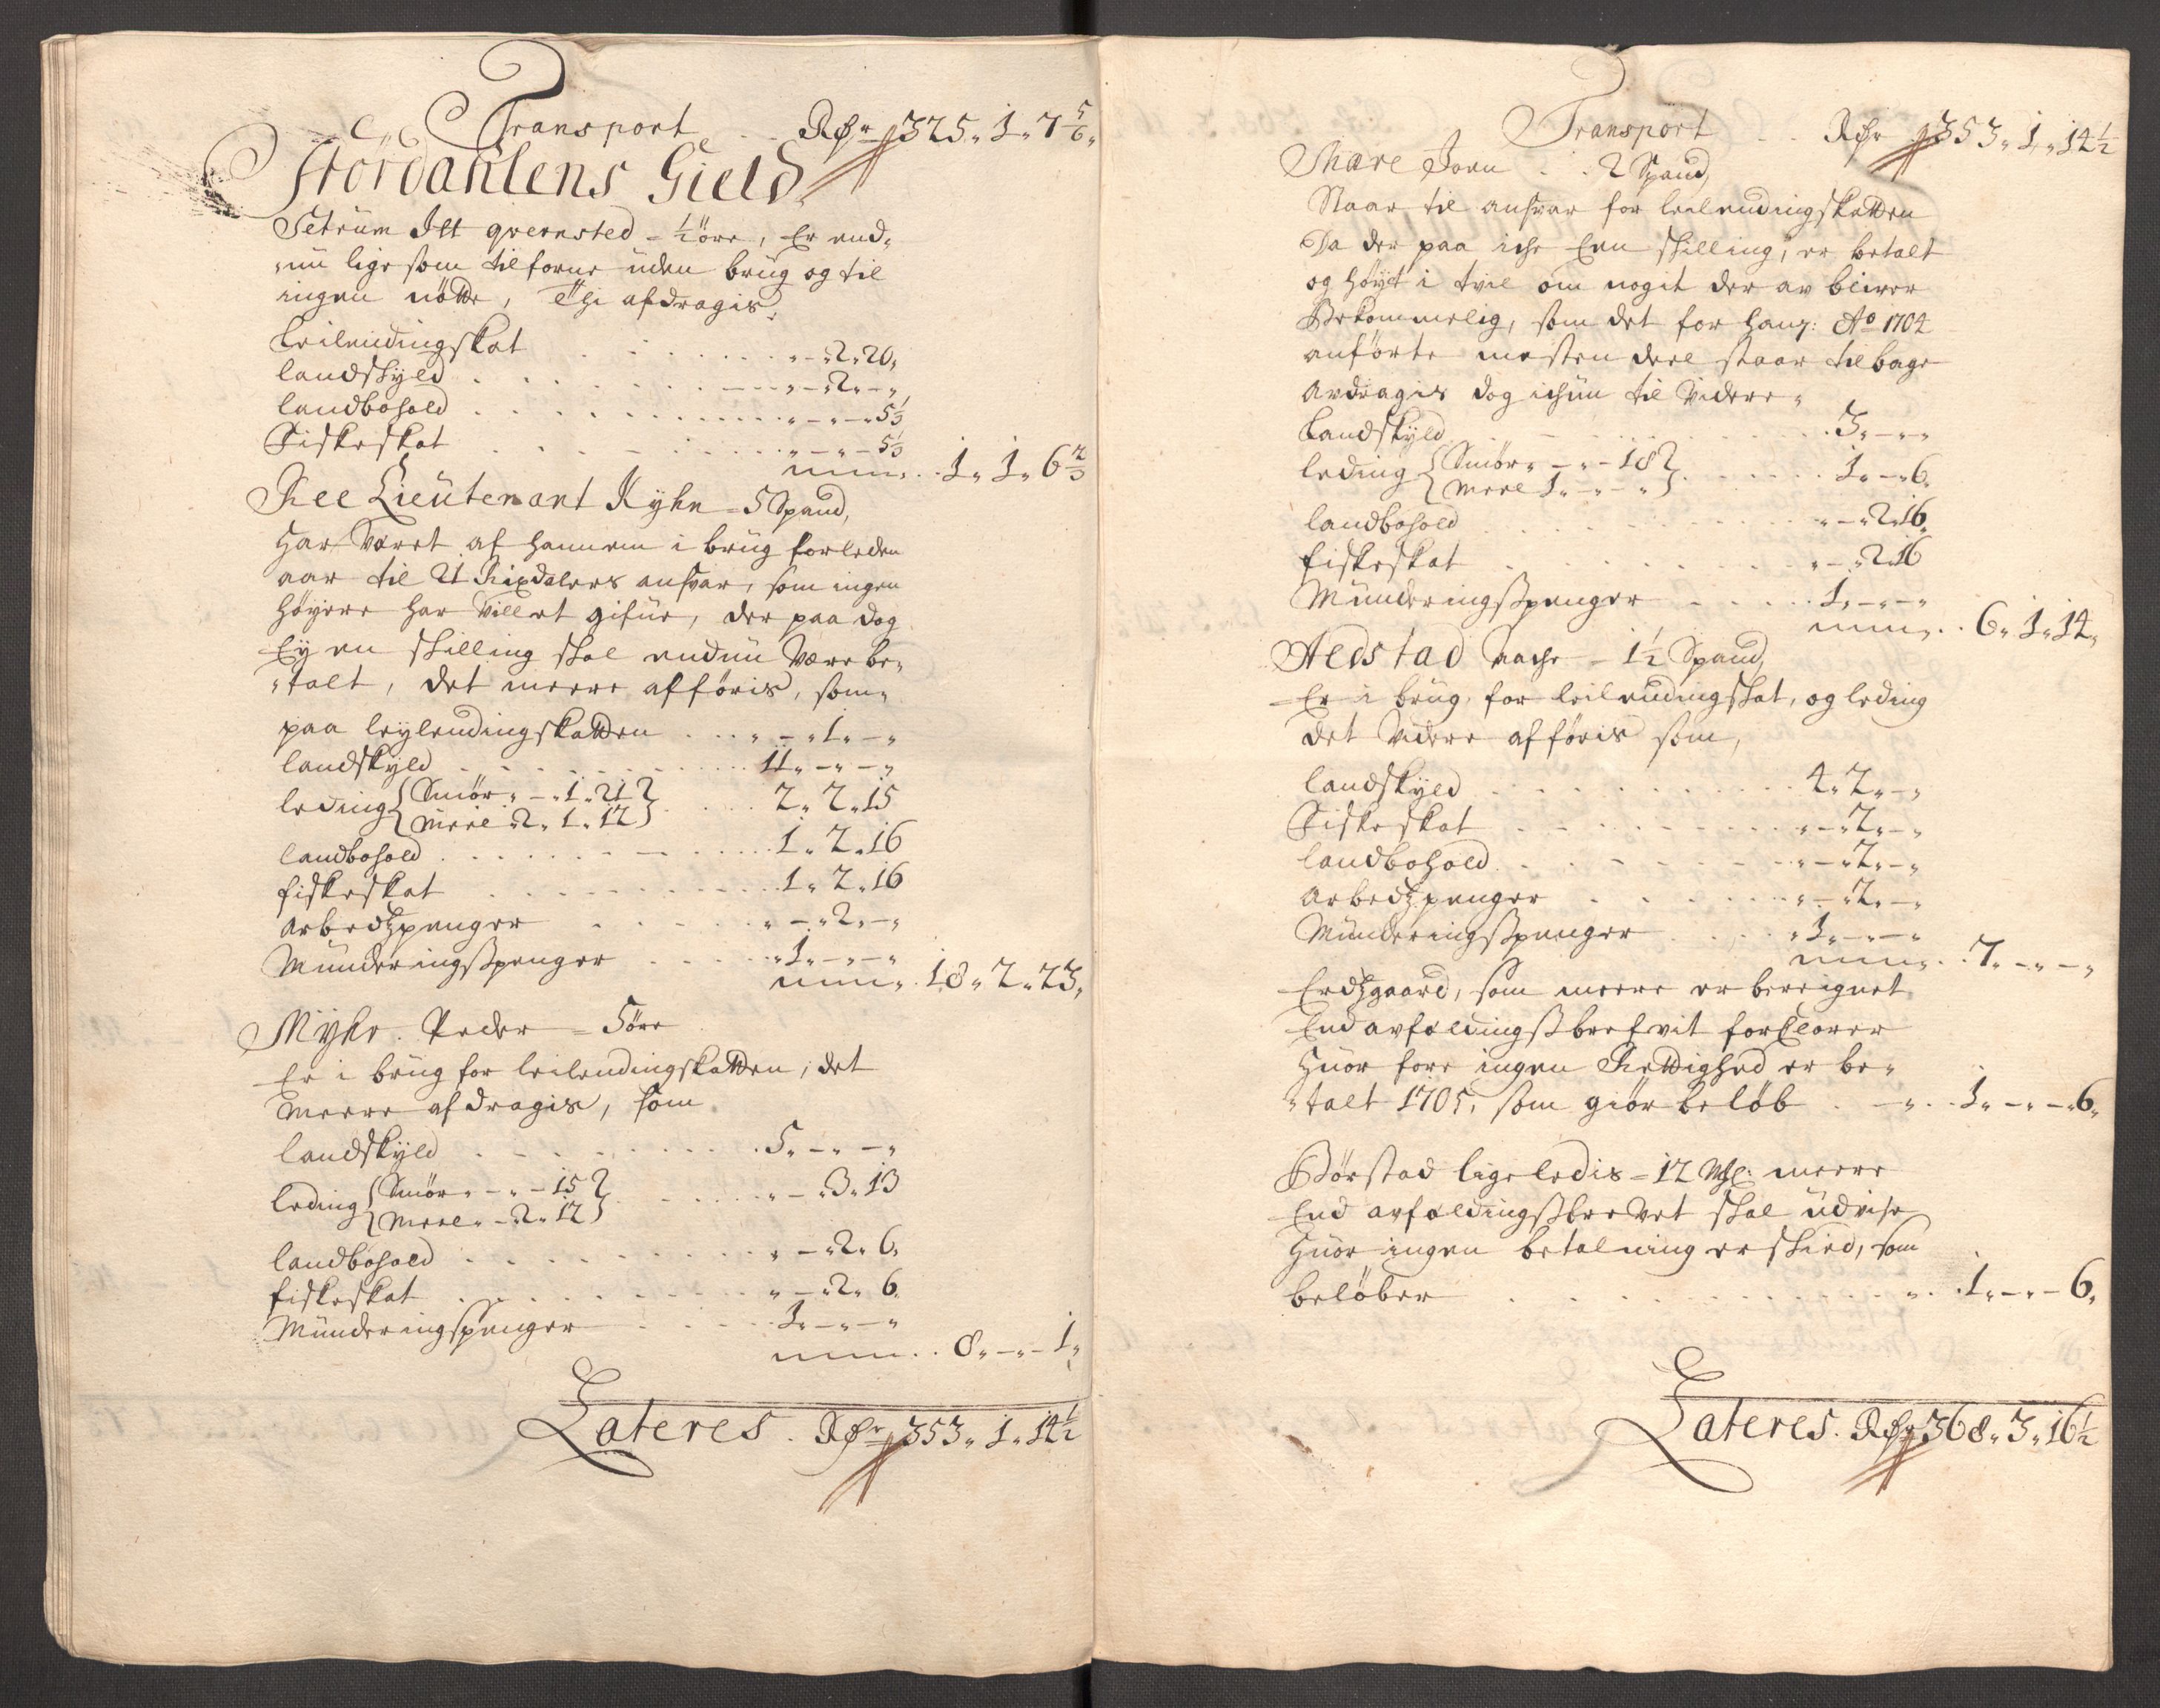 Transport . . Rdr 325„ 1„ 7 5/6„
Stördahlens Gield
Setrum Itt qvernsted = ½ öre, Er end„
„nu lige som tilforne uden brug og til
ingen nötte, Thi afdragis„
Leilendingskat . . . „ - „ 2„ 20„
landskyld . . . „ - „ 2„ - „
landbohold . . . „ - „ - „ 5 1/3
Fiskeskat . . . „ - „ - 5 1/3
. . 1„ 1„ 6 2/3
Ree Lieutenant Kyhn = 5 Spand,
Har Været af hannem i brug forleden
aar til 21 Rixdalers ansvar, som ingen
höyere har Villet gifue, der paa dog
Ey en skilling skal endnu Være be„
„talt, det meere afföris, som„
paa leylendingskatten . . . „ - „ 1„ - „
landskyld . . . 11„ - „ - „
leding { Smör„ - „ 1„ 21 } . . . 2„ 2„ 15
{ Meel „ 2„ 1„ 12 }
landbohold . . . 1„ 2„ 16
fiskeskat . . . 1„ 2„ 16
arbedtzpenger . . . „ - „ 2„ - „
Munderingsspenger . . . „ 1„ - „ - „
. 18„ 2„ 23„
Myhr. Peder = 5 öre
Er i brug for leilendingskatten, det
Meere afdragis, som
landskyld . . . 5„ - „ - „
leding { Smör„ - „ - 15 } . . . „ - „ 3„ 13
{ Meel„ - 2„ 12 }
landbohold . . . „ - „ 2„ 6„
fiskeskat . . . „ - „ 2„ 6„
Munderingspenger . . . 1„ - „ - „
. . 8„ - „ - 1„
Lateres. Rdr 353„ 1„ 14½
Transport . . Rdr 353„ 1„ 14½
Mære Joen . . 2 Spand,
Staar til ansvar for leilendingskatten
Da der paa iche Een skilling, er betalt
og höyt i tvil om nogit der av bliver
Bekommelig, som det for hans: Ao 1704
anförte mesten deel staar tilbage
avdragis dog ichun til Videre„
Landskyld . . . 3„ - „ -
leding { Smör„ - „ - 18 } . . . 1„ - „ 6„
{ Meel 1„ - „ - „ }
landbohold . . . „ - „ 2„ 16„
fiskeskat . . . „ - „ 2„ 16
Munderingsspenger . . . 1„ - „ - „
. . 6„ 1„ 14„
Aedstad Aache - 1½ Spand,
Er i brug, for leilendingskat, og leding
det Videre afföris som,
landskyld . . . 4„ 2„ - „
Fiskeskat . . . „ - „ 2„ - „
landbohold . . . „ - „ 2„ - „
arbedtzpenger . . . „ - „ 2„ - „
Munderingsspenger . . . „ 1„ - „ - „
. . 7„ - „ - „
Erdtzgaard, som meere er bereignet
End avfældingssbrefvit forklarer
Huor fore ingen Rettighed er be„
„talt 1705, som giör beløb . . . 1„ - „ - „ 6„
Börstad ligeledis = 12 Mkl: meere
End avfældingssbrevet skal udvise
Huor ingen betalning er skied, som
belöber . . . „ . 1„ - „ - 6„
Lateres. Rdr 368„ 3„ 16½